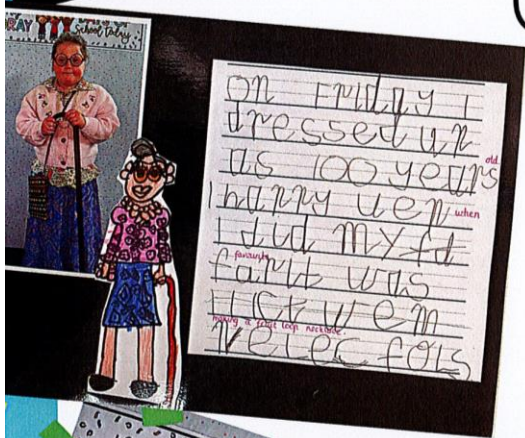 RAY
School today
On Friday I
dressed up
as 100 years old
I happy wen when
I did my fd
favourite
farit was
making a fruit loop necklace.